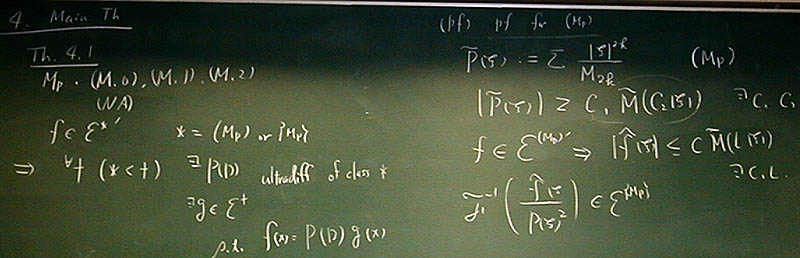 4. Main Th
Th. 4.1
Mp . (M.0), (M.1), (M.2)
(NA)
f ∈ ℰ*′ * = (Mp) or {Mp}
⇒ ∀† (* < †) ∃P(D) ultradiff of class *
∃g ∈ ℰ†
s.t. f(x) = P(D) g(x)
(pf) pf for (Mp)
P̃(ζ) := Σ |ζ|^{2k} / M_{2k} (Mp)
|P̃(ζ)| ≥ C, M̃(C₂|ζ|) ∃C, C,
f ∈ ℰ^{(Mp)′} ⇒ |f̂(ζ)| ≤ C M̃(L|ζ|)
∃C, L.
ℱ^{-1} ( f̂(ζ) / P(ζ)² ) ∈ ℰ^{{Mp}}